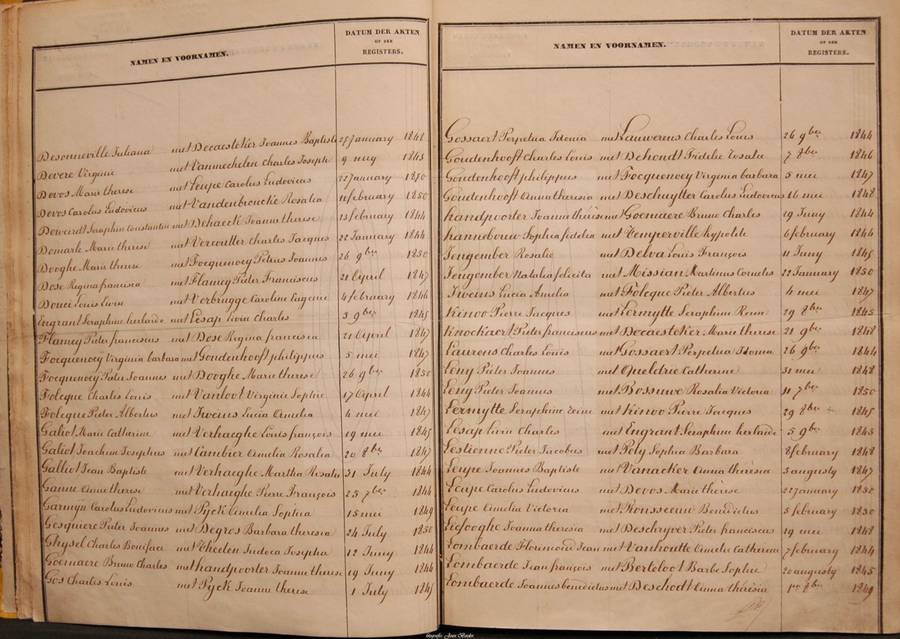 NAMEN EN VOORNAMEN.
DATUM DER AKTEN
OF DER
REGISTERS.
Desonneville Juliana met Decaesteker Joannes Baptiste 27 january 1848
Devere Virginie met Vanmechelen Charles Joseph 9 mey 1845
Devos Marie therese met Leupe Carolus Ludovicus 22 january 1850
Devos Carolus Ludovicus met Vandenbroucke Rosalia 11 february 1850
Dewerdt Seraphin Constantin met Dehaeck Joanna therese 13 february 1844
Domark Marie therese met Vercoutter Charles Jacques 22 January 1844
Dooghe Marie therese met Focquenoey Petrus Joannes 26 9ber 1850
Dose Regina francisca met Flamey Pieter Franciscus 21 April 1847
Douci Louis livin met Verbrugge Caroline Eugenie 4 february 1846
Engrant Seraphine herlaide met Lesap livin Charles 5 9ber 1845
Flamey Pieter franciscus met Dose Regina francisca 21 April 1847
Focquenoey Virginia barbara met Goudenhooft philippus 5 mei 1847
Focquenoey Pieter Joannes met Dooghe Marie therese 26 9ber 1850
Foleque Charles Louis met Vanloot Virginie Sophie 17 April 1844
Foleque Pieter Albertus met Iweins Lucia Amelia 4 mei 1847
Galiot Marie Catharine met Verhaeghe Louis françois 19 mei 1845
Galiot Joachim Josephus met Cambier Amelia Rosalia 20 8ber 1847
Galliot Jean Baptiste met Verhaeghe Martha Rosalie 31 July 1844
Ganne Anne therese met Verhaeghe Pierre François 25 7ber 1844
Garmyn Carolus Ludovicus met Pyck Amelia Sophia 15 mei 1849
Gesquiere Pieter Joannes met Degros Barbara theresia 24 July 1850
Ghysel Charles Boniface met Theelen Judoca Josepha 12 Juny 1844
Goemaere Bruno Charles met handpoorter Joanna therese 19 Juny 1844
Gos Charles Louis met Pyck Joanna therese 1 July 1845
NAMEN EN VOORNAMEN.
DATUM DER AKTEN
OF DER
REGISTERS.
Gossaert Perpetua Idonia met Lauwerins Charles Louis 26 9ber 1844
Goudenhooft Charles Louis met Dehondt Fidelie Rosalie 7 8ber 1846
Goudenhooft philippus met Focquenoey Virginia barbara 5 mei 1847
Goudenhooft Anna theresia met Deschuytter Carolus Ludovicus 16 mei 1848
handpoorter Joanna therese met Goemaere Bruno Charles 19 Juny 1844
hannebouw Sophia fidelia met Vemperville hypolite 6 february 1844
Jengember Rosalie met Delva Louis François 11 Juny 1845
Jengember Natalia felicita met Missian Martinus Cornelus 22 January 1850
Iweins Lucia Amelia met Foleque Pieter Albertus 4 mei 1847
Kinoo Pierre Jacques met Lermytte Seraphine Reine 29 8ber 1845
Knockaert Pieter franciscus met Decaesteker Marie therese 21 9ber 1848
Laurens Charles Louis met Gossaert Perpetua Idonia 26 9ber 1844
Leny Pieter Joannes met Opueletre Catherine 31 mei 1848
Leny Pieter Joannes met Bossuwe Rosalia Victoria 11 7ber 1850
Lermytte Seraphine Reine met Kinoo Pierre Jacques 29 8ber 1845
Lesap livin Charles met Engrant Seraphine herlaide 5 9ber 1845
Lestienne Pieter Jacobus met Poly Sophia Barbara 8 february 1848
Leupe Joannes Baptiste met Vanacker Anna theresia 5 augusty 1847
Leupe Carolus Ludovicus met Devos Marie therese 22 january 1850
Leupe Amelia Victoria met Rousseeuw Benedictus 5 february 1850
Liefooghe Joanna theresia met Deschryver Pieter franciscus 19 mei 1848
Lombaerde Florimond Jean met Vanhoutte Amelie Catherine 7 february 1844
Lombaerde Jean françois met Berteloot Barbe Sophie 20 augusty 1845
Lombaerde Joannes benedictus met Deschodt Anna theresia 8ber 1849